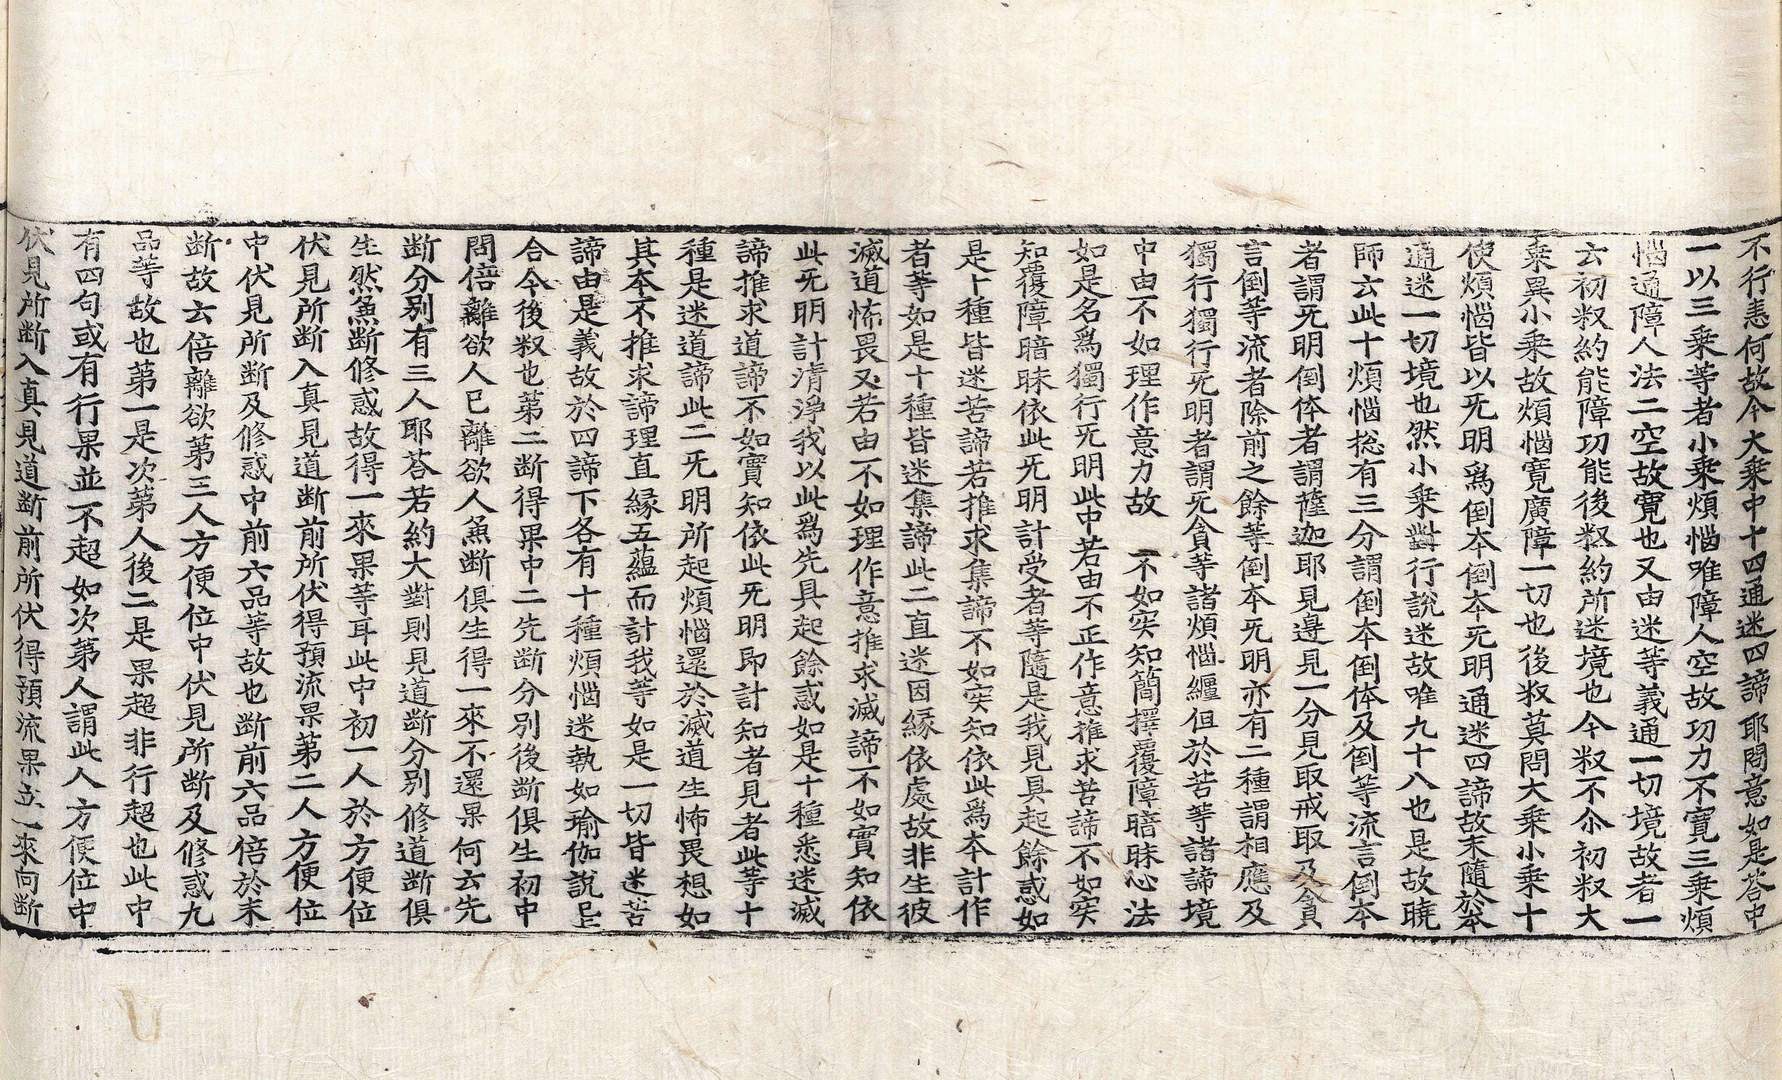 不行恚何故今大乗中十四通迷四諦耶問意如是荅中
一以三乗等者小乗煩惱唯障人空故功力不寛三乗煩
惱通障人法二空故寛也又由迷等義通一切境故者一
云初釈約能障功能後釈約所迷境也今釈不尒初釈大
乗異小乗故煩惱寛廣障一切也後釈莫問大乗小乗十
使煩惱皆以旡明爲倒本倒本旡明通迷四諦故末随於本
通迷一切境也然小乗對行說迷故唯九十八也是故暁
師云此十煩惱捴有三分謂倒本倒体及倒等流言倒本
者謂旡明倒体者謂薩迦耶見邊見一分見取戒取及貪
言倒等流者除前之餘等倒本旡明亦有二種謂相應及
獨行獨行旡明者謂旡貪等諸煩惱纒但於苦等諸諦境
中由不如理作意力故　不如実知簡擇覆障暗昧心法
如是名爲獨行旡明此中若由不正作意推求苦諦不如実
知覆障暗昧依此旡明計受者等隨是我見具起餘惑如
是十種皆迷苦諦若推求集諦不如実知依此爲本計作
者等如是十種皆迷集諦此二直迷因縁依處故非生彼
滅道怖畏又若由不如理作意推求滅諦不如實知依
此旡明計清淨我以此爲先具起餘惑如是十種悉迷滅
諦推求道諦不如實知依此旡明即計知者見者此等十
種是迷道諦此二旡明所起煩惱還於滅道生怖畏想如
其本不推求諦理直縁五蘊而計我等如是一切皆迷苦
諦由是義故於四諦下各有十種煩惱迷執如瑜伽說
合今後釈也第二断得果中二先断分別後断俱生初中
問倍離欲人已離欲人兼断俱生得一來不還果何云先
断分別有三人耶荅若約大對則見道断分別修道断俱
生然兼断修惑故得一來果等耳此中初一人於方便位
伏見所断入真見道断前所伏得預流果第二人方便位
中伏見所断及修惑中前六品等故也断前六品倍於未
断故云倍離欲第三人方便位中伏見所断及修惑九
品等故也第一是次第人後二是果超非行超也此中
有四句或有行果並不超如次第人謂此人方便位中
伏見所断入真見道断前所伏得預流果立一來向断